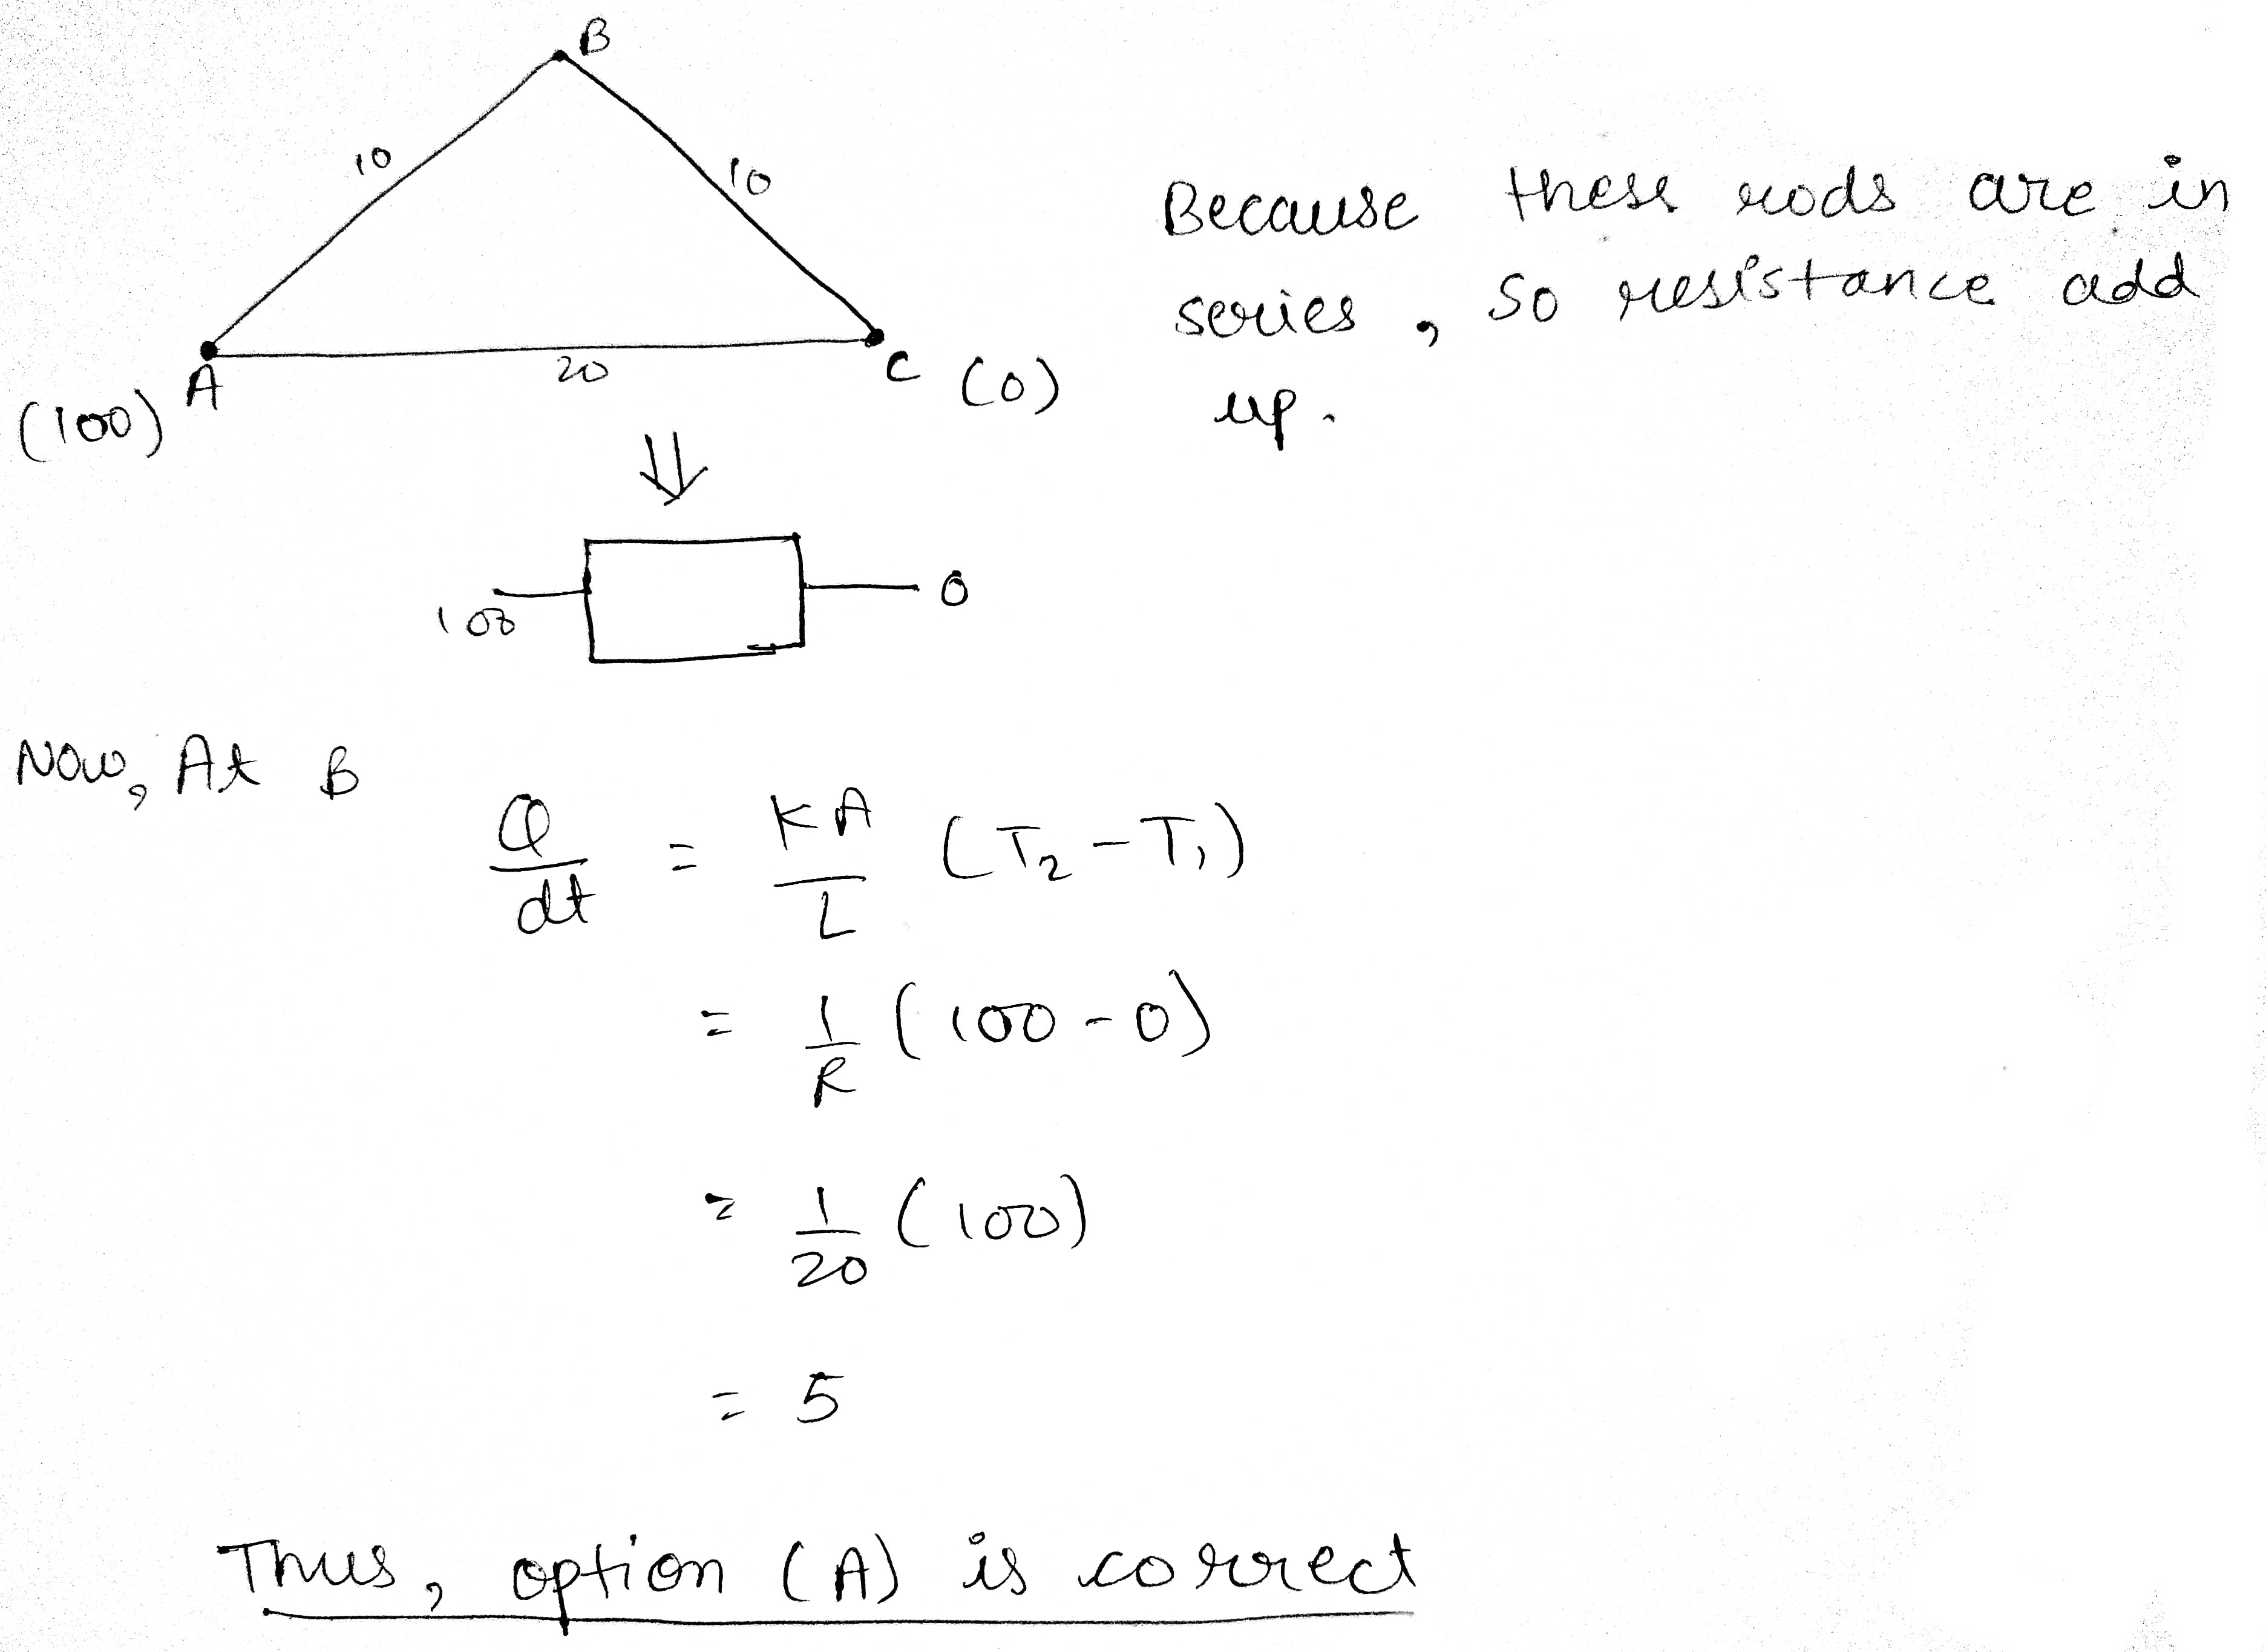 B
10
10
Because these rods are in
series, so resistance add
up.
A
20
C (0)
(100)
100
0
Now, At B
Q/dt = KA/L (T₂-T₁)
= 1/R (100-0)
= 1/20 (100)
= 5
Thus, option (A) is correct